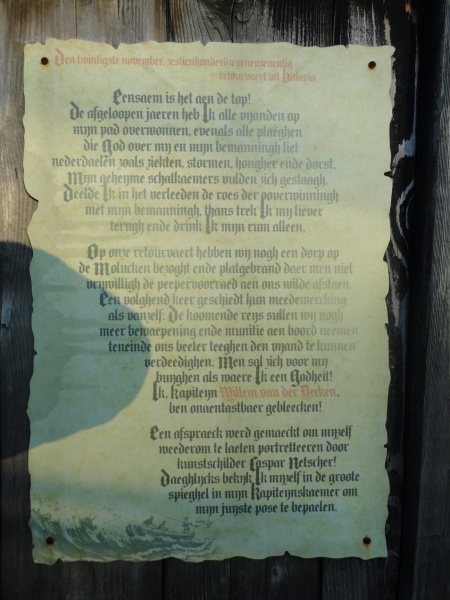 Den twintigste november, zestienhonderdzevenenzeventig
retourvaert uit Batavia
Eensaem is het aen de top!
De afgeloopen jaeren heb Ik alle vijanden op
mijn pad overwonnen, evenals alle plaeghen
die God over mij en mijn bemanningh liet
nederdaelen zoals ziekten, stormen, hongher ende dorst.
Mijn geheijme schatkaemers vulden zich gestaagh.
Deelde Ik in het verleeden de roes der ooverwinningh
mét mijn bemanningh, thans trek Ik mij liever
terugh ende drink Ik mijn rum alleen.
Op onze retourvaert hebben wij nogh een dorp op
de Molucken bezoght ende platgebrand daer men niet
vrijwilligh de peepervoorraed aen ons wilde afstaen.
Een volghend keer geschiedt hun meedewercking
als vanzelf. De koomende reijs sullen wij nogh
meer bewaepening ende munitie aen boord neemen
teneinde ons beeter teeghen den vijand te kunnen
verdeedighen. Men sal zich voor mij
buijghen als waere Ik een Godheit!
Ik, Kapiteijn Willem van der Decken,
ben onaentastbaer gebleecken!
Een afspraeck werd gemaeckt om mijzelf
weederom te laeten portretteeren door
kunstschilder Caspar Netscher!
Daeghlijcks bekijk Ik mijzelf in de groote
spieghel in mijn Kapiteijnskaemer om
mijn juijste pose te bepaelen.